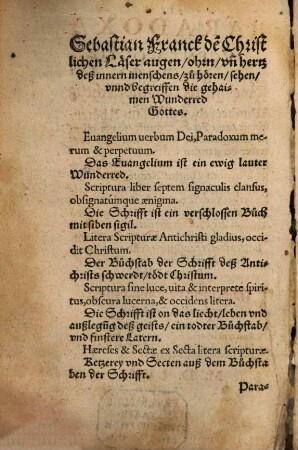 Sebastian Franck dē Christ
lichen Läser augen/ohrn/vñ hertz
deß innern menschens/zů hören/sehen/
vnnd begreiffen die gehai-
men Wunderred
Gottes.
Euangelium uerbum Dei, Paradoxum me-
rum & perpetuum.
Das Euangelium ist ein ewig lauter
Wünderred.
Scriptura liber septem signaculis clausus,
obsignatumque ænigma.
Die Schrifft ist ein verschlossen Bůch
mit siben sigil.
Litera Scripturæ Antichristi gladius, occi-
dit Christum.
Der Bůchstab der Schrifft deß Anti-
christs schwerdt/tödt Christum.
Scriptura sine luce, uita & interprete spiri-
tus, obscura lucerna, & occidens litera.
Die Schrifft ist on das liecht/leben vnd
außlegůg deß geists/ein todter Bůchstab/
vnd finstere Latern.
Hæreses & Sectæ ex Secta litera scripturæ.
Ketzerey vnd Secten auß dem Bůchsta
ben der Schrifft.
Para-